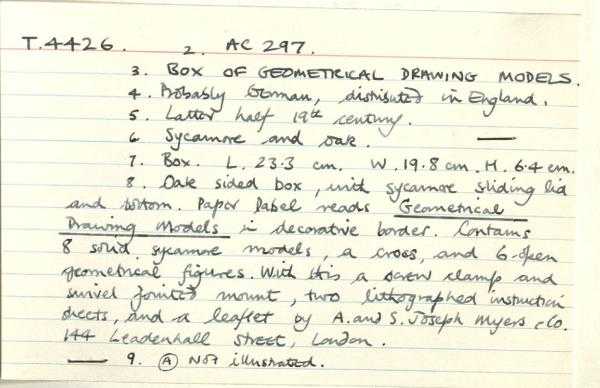 T.4426. 2. AC 297.
3. BOX OF GEOMETRICAL DRAWING MODELS.
4. Probably German, distributed in England.
5. Latter half 19th century.
6. Sycamore and oak.
7. Box. L. 23.3 cm. W. 19.8 cm. H. 6.4 cm.
8. Oak sided box, with sycamore sliding lid
and bottom. Paper label reads Geometrical
Drawing Models in decorative border. Contains
8 solid sycamore models, a cross, and 6 open
geometrical figures. With this a screw clamp and
swivel jointed mount, two lithographed instruction
sheets, and a leaflet by A. and S. Joseph Myers & Co.
144 Leadenhall Street, London.
9. A Not illustrated.